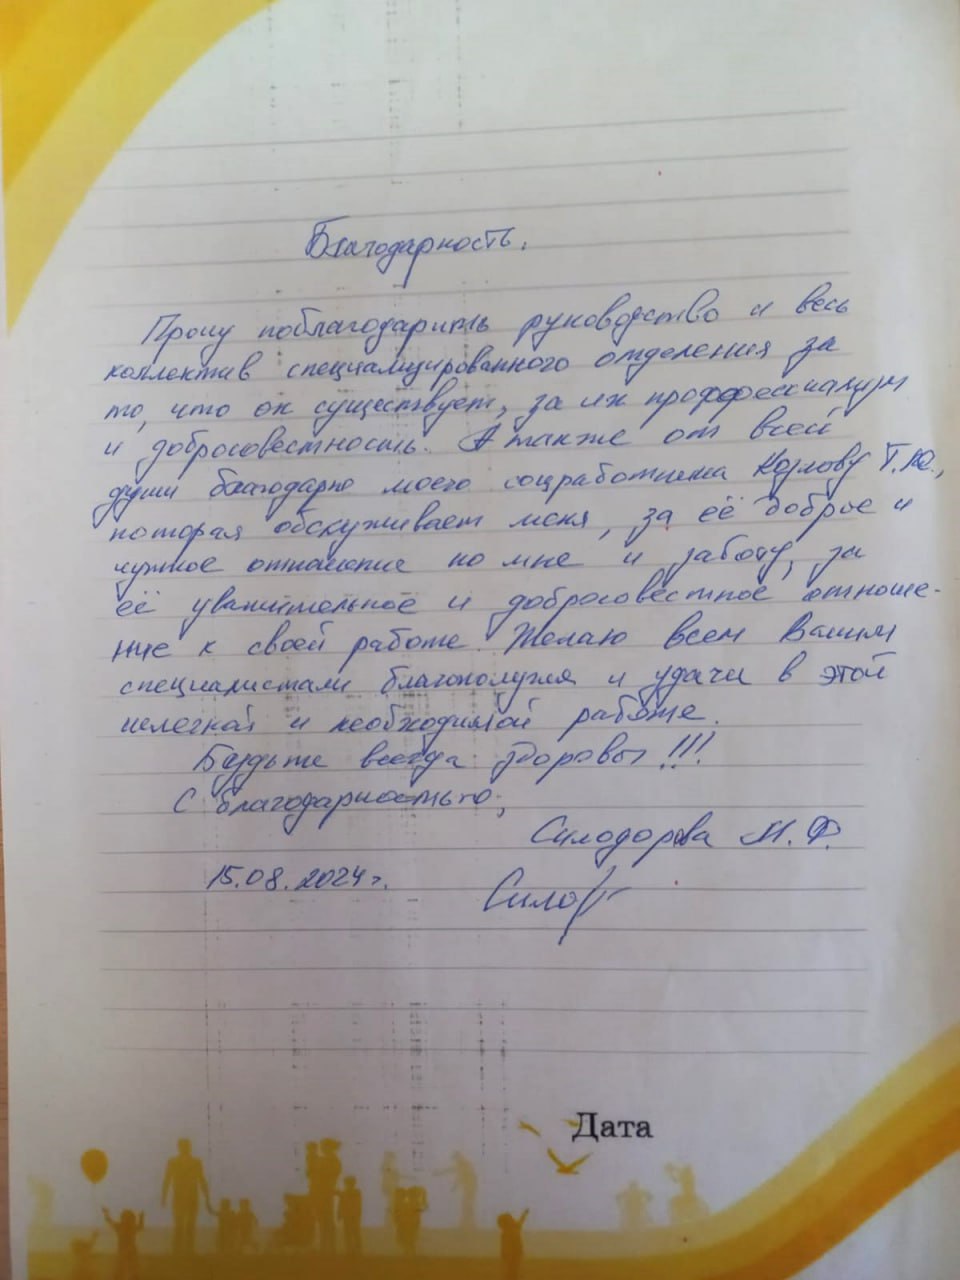 Благодарность.
Прошу поблагодарить руководство и весь
коллектив специализированного отделения за
то, что он существует, за их проффессионализм
и добросовестность. А также от всей
души благодарю моего соцработника Козлову Т.Ю.,
которая обслуживает меня, за её доброе и
чуткое отношение ко мне и заботу, за
её уважительное и добросовестное отноше-
ние к своей работе. Желаю всем Вашим
специалистам благополучия и удачи в этой
нелегкой и необходимой работе.
Будьте всегда здоровы!!!
С благодарностью,
Силодорова М. Ф.
15.08.2024г.
Дата